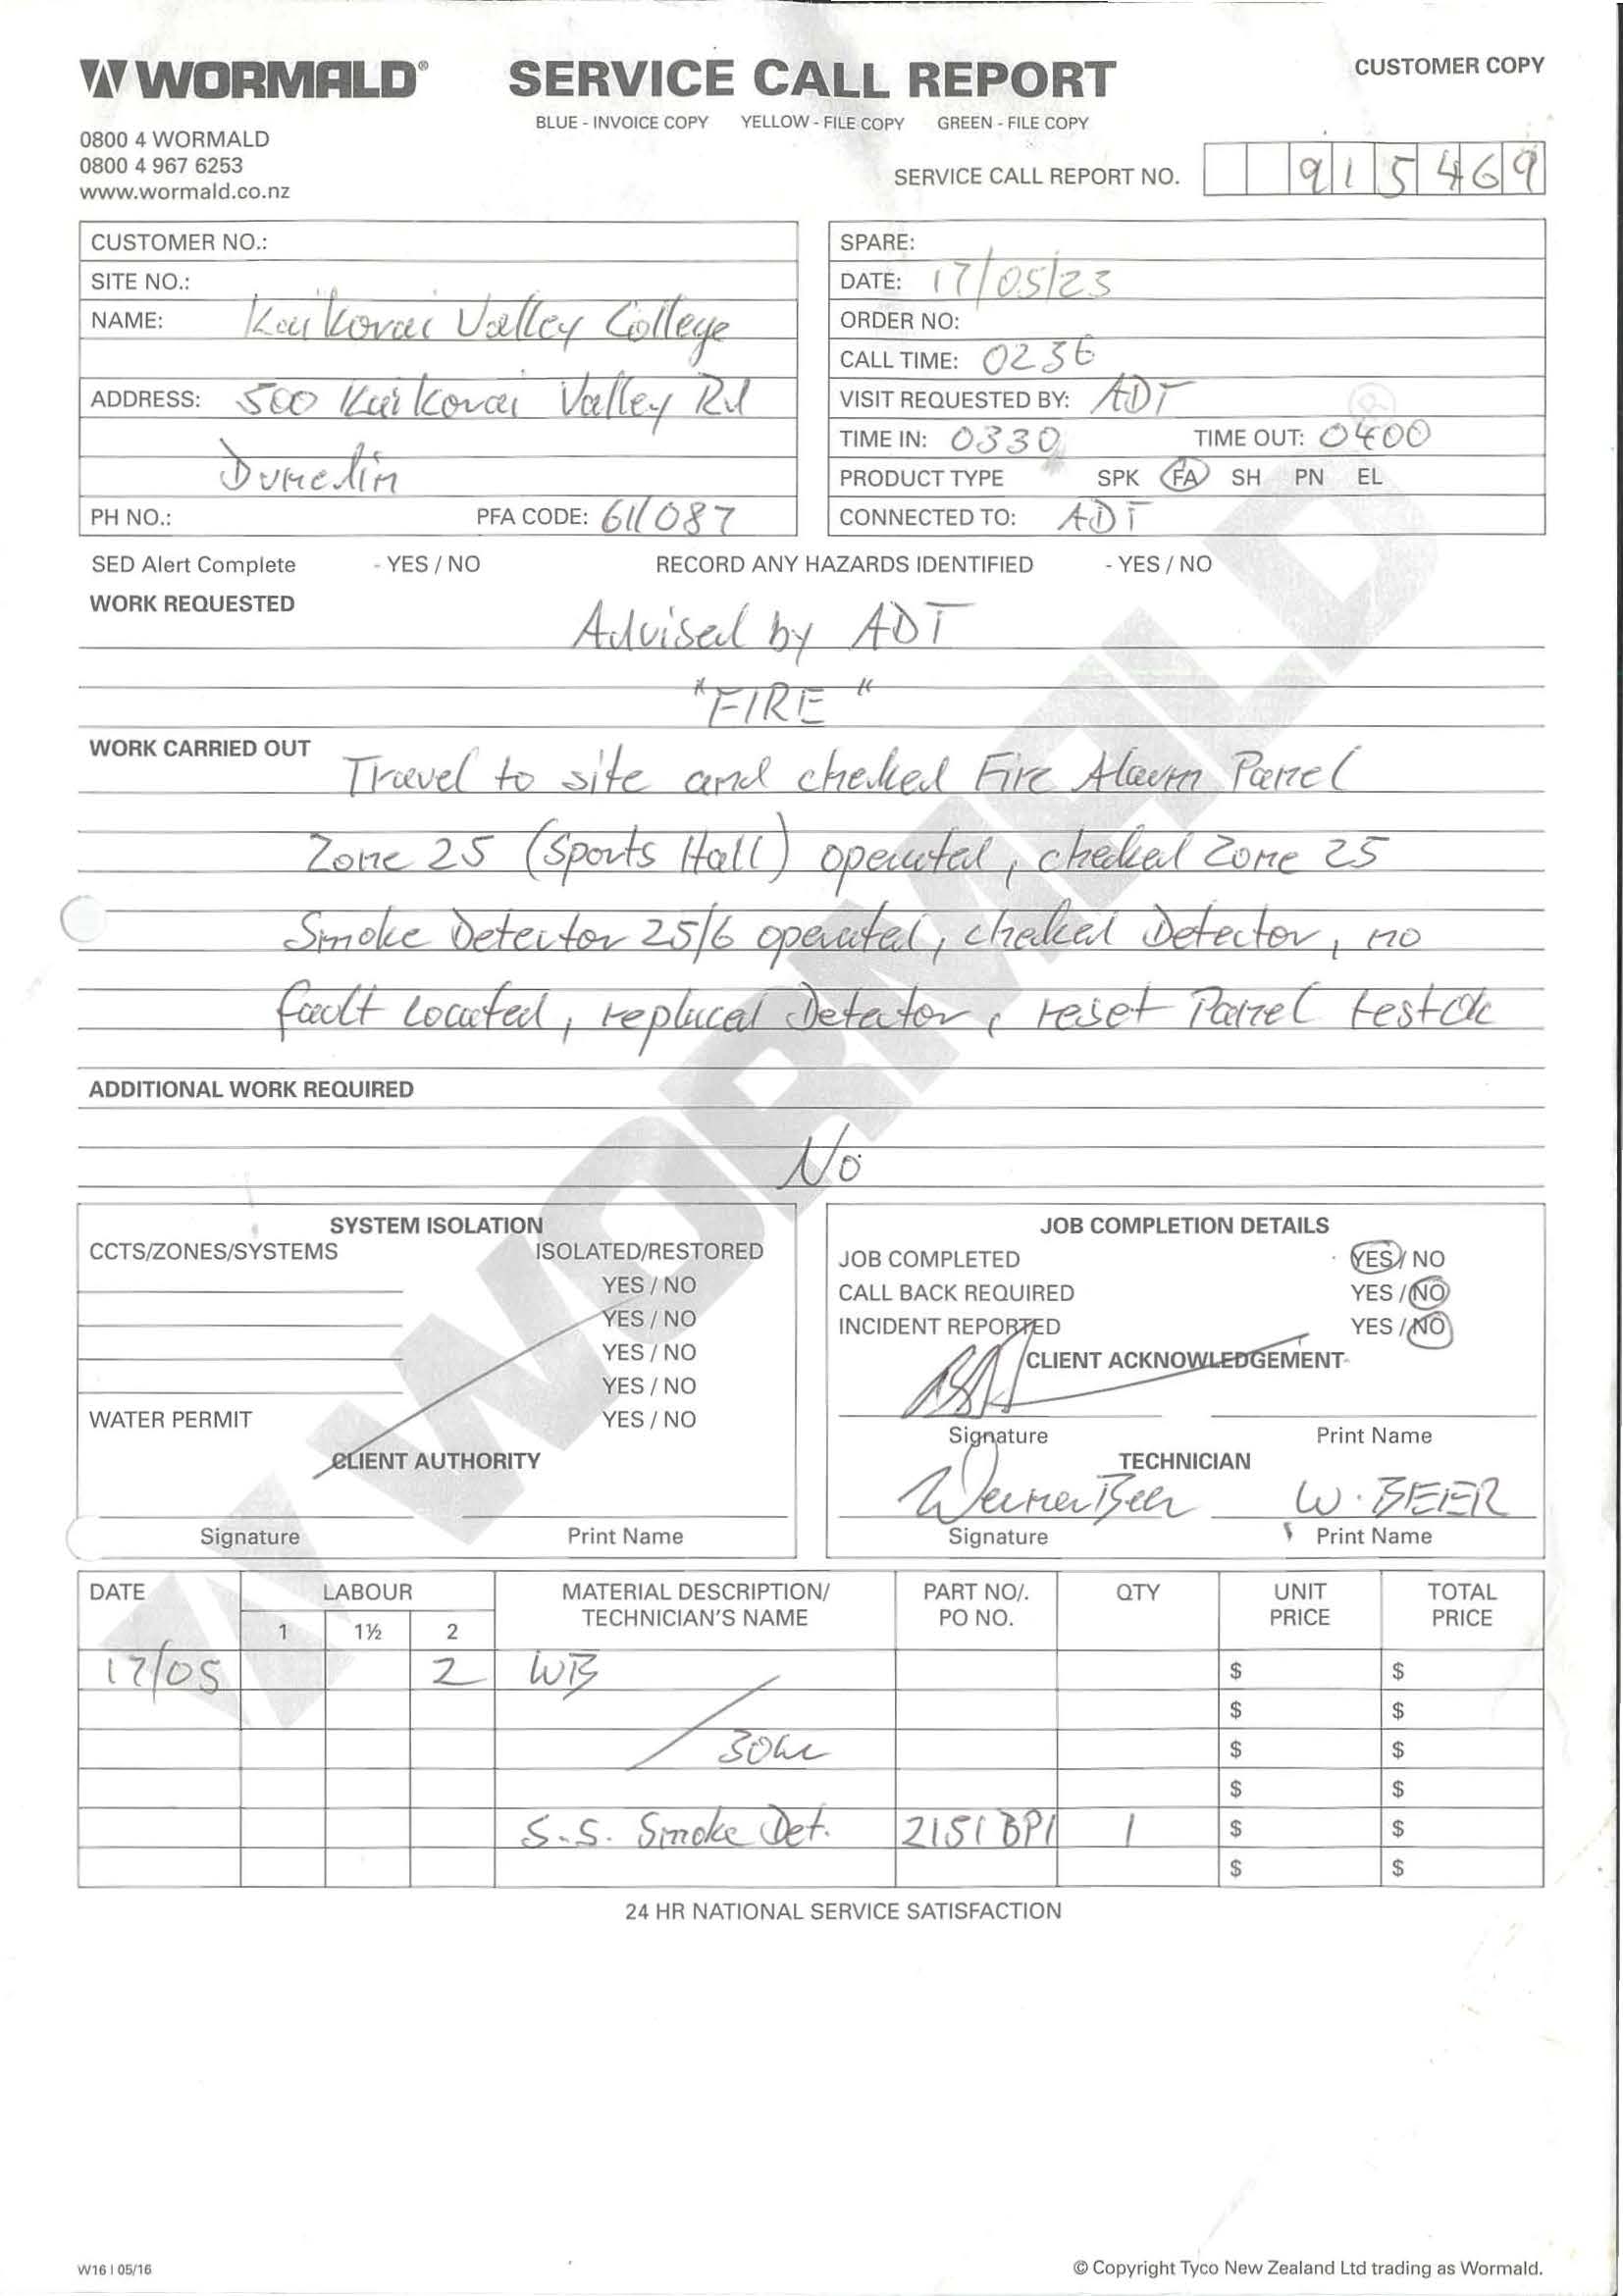 WORMALD®
SERVICE CALL REPORT
CUSTOMER COPY
BLUE - INVOICE COPY YELLOW - FILE COPY GREEN - FILE COPY
0800 4 WORMALD
0800 4 967 6253
www.wormald.co.nz
SERVICE CALL REPORT NO. 915469
CUSTOMER NO.:
SITE NO.:
NAME: Kaikorai Valley College
ADDRESS: 500 Kaikorai Valley Rd
Dunedin
PH NO.: PFA CODE: 611087
SPARE:
DATE: 17/05/23
ORDER NO:
CALL TIME: 0236
VISIT REQUESTED BY: ADT
TIME IN: 0330 TIME OUT: 0400
PRODUCT TYPE SPK FA SH PN EL
CONNECTED TO: ADT
SED Alert Complete - YES / NO RECORD ANY HAZARDS IDENTIFIED - YES / NO
WORK REQUESTED
Advised by ADT
"FIRE"
WORK CARRIED OUT
Travel to site and checked Fire Alarm Panel
Zone 25 (Sports Hall) operated, checked Zone 25
Smoke Detector 25/6 operated, checked Detector, no
fault located, replaced Detector, reset Panel test ok
ADDITIONAL WORK REQUIRED
No
SYSTEM ISOLATION
CCTS/ZONES/SYSTEMS ISOLATED/RESTORED
YES / NO
YES / NO
YES / NO
YES / NO
WATER PERMIT YES / NO
CLIENT AUTHORITY
Signature Print Name
JOB COMPLETION DETAILS
JOB COMPLETED YES / NO
CALL BACK REQUIRED YES / NO
INCIDENT REPORTED YES / NO
CLIENT ACKNOWLEDGEMENT
Signature Print Name
TECHNICIAN
Werner Beer W. BEER
Signature Print Name
DATE LABOUR MATERIAL DESCRIPTION/ PART NO/. QTY UNIT TOTAL
TECHNICIAN'S NAME PO NO. PRICE PRICE
1 1½ 2
17/05 2 WB $ $
$ $
$ $
$ $
S.S. Smoke Det. 2151BPI 1 $ $
$ $
24 HR NATIONAL SERVICE SATISFACTION
W16 | 05/16
© Copyright Tyco New Zealand Ltd trading as Wormald.
WORMALD ®